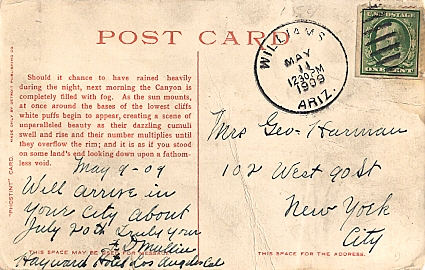 POST CARD
WILLIAMS
MAY
11
12 30 PM
1909
ARIZ.
U.S. POSTAGE
ONE CENT
Should it chance to have rained heavily
during the night, next morning the Canyon is
completely filled with fog. As the sun mounts,
at once around the bases of the lowest cliffs
white puffs begin to appear, creating a scene of
unparalleled beauty as their dazzling cumuli
swell and rise and their number multiplies until
they overflow the rim; and it is as if you stood
on some land's end looking down upon a fathom-
less void.
"PHOSTINT" CARD.
MADE ONLY BY DETROIT PUBLISHING CO.
May 9-09
Will arrive in
your City about
July 20th Truly your
Mullin
Hayward Hotel Los Angeles Cal
THIS SPACE MAY BE USED FOR MESSAGE.
Mrs Geo. Harman
102 West 90 St
New York
City
THIS SPACE FOR THE ADDRESS.